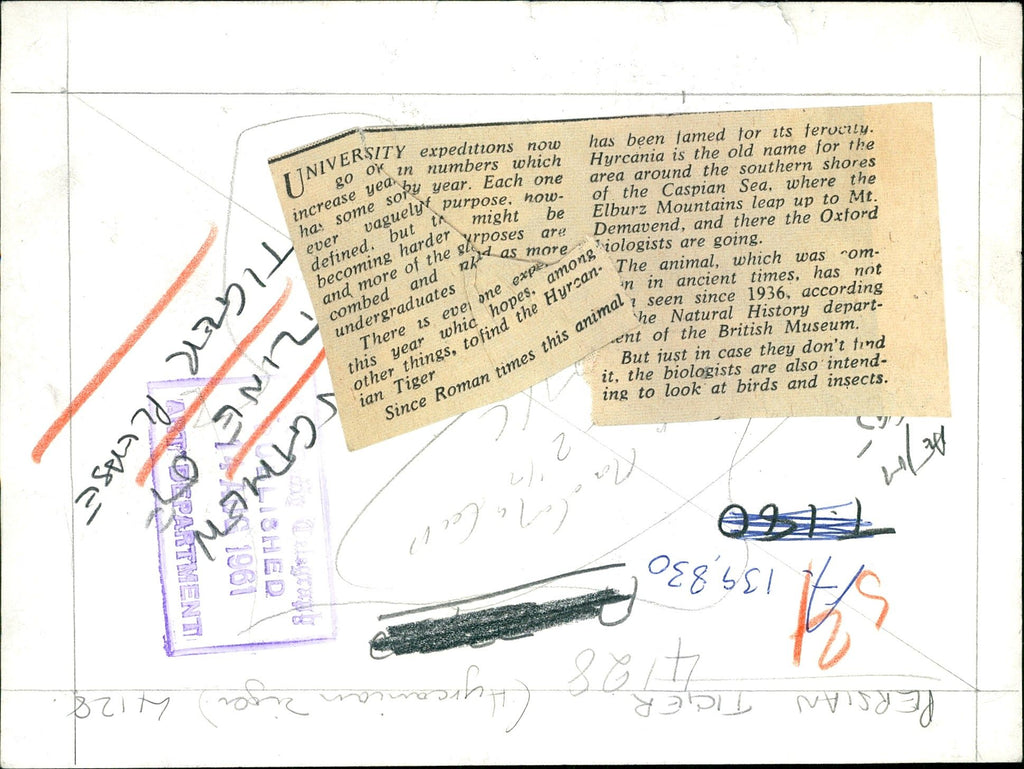 UNIVERSITY expeditions now
go on in numbers which
increase year by year. Each one
has some sort of purpose, how-
ever vaguely
defined, but might be
becoming harder
purposes are
and more of the
combed and as more
undergraduates
There is even one expe
this year which hopes, among
other things, to find the Hyrcan-
ian Tiger
Since Roman times this animal
has been famed for its ferocity.
Hyrcania is the old name for the
area around the southern shores
of the Caspian Sea, where the
Elburz Mountains leap up to Mt.
Demavend, and there the Oxford
biologists are going.
The animal, which was com-
n in ancient times, has not
seen since 1936, according
he Natural History depart-
ent of the British Museum.
But just in case they don't find
it, the biologists are also intend-
ing to look at birds and insects.
TIGER
LINE
PLEASE
Daily Telegraph
PUBLISHED
AUG 1961
ART DEPARTMENT
T.180
139,830
4128
PERSIAN TIGER (Hyrcanian Tiger) 4128.